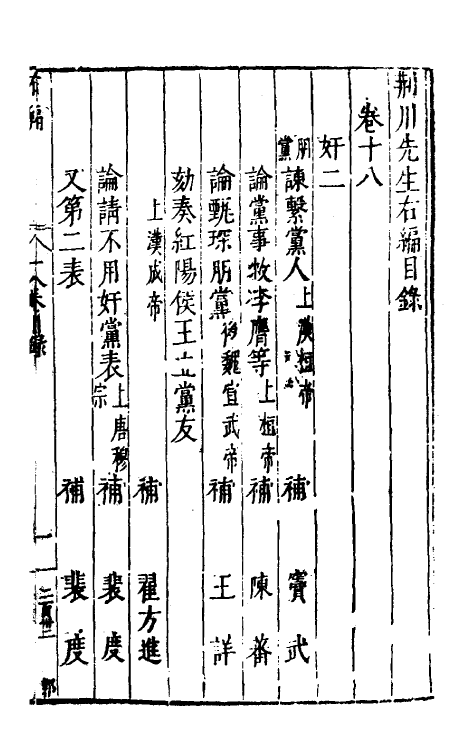 荆川先生右編目錄
卷十八
奸二
朋黨 諫繫黨人 上漢桓帝 補 竇武
論黨事救李膺等 上桓帝 補 陳蕃
論甄琛朋黨 後魏宣武帝 補 王詳
劾奏紅陽侯王立黨友
上漢成帝 補 翟方進
論請不用奸黨表 上唐穆宗 補 裴度
又第二表 補 裴度
右編 十八卷目錄 一 郭